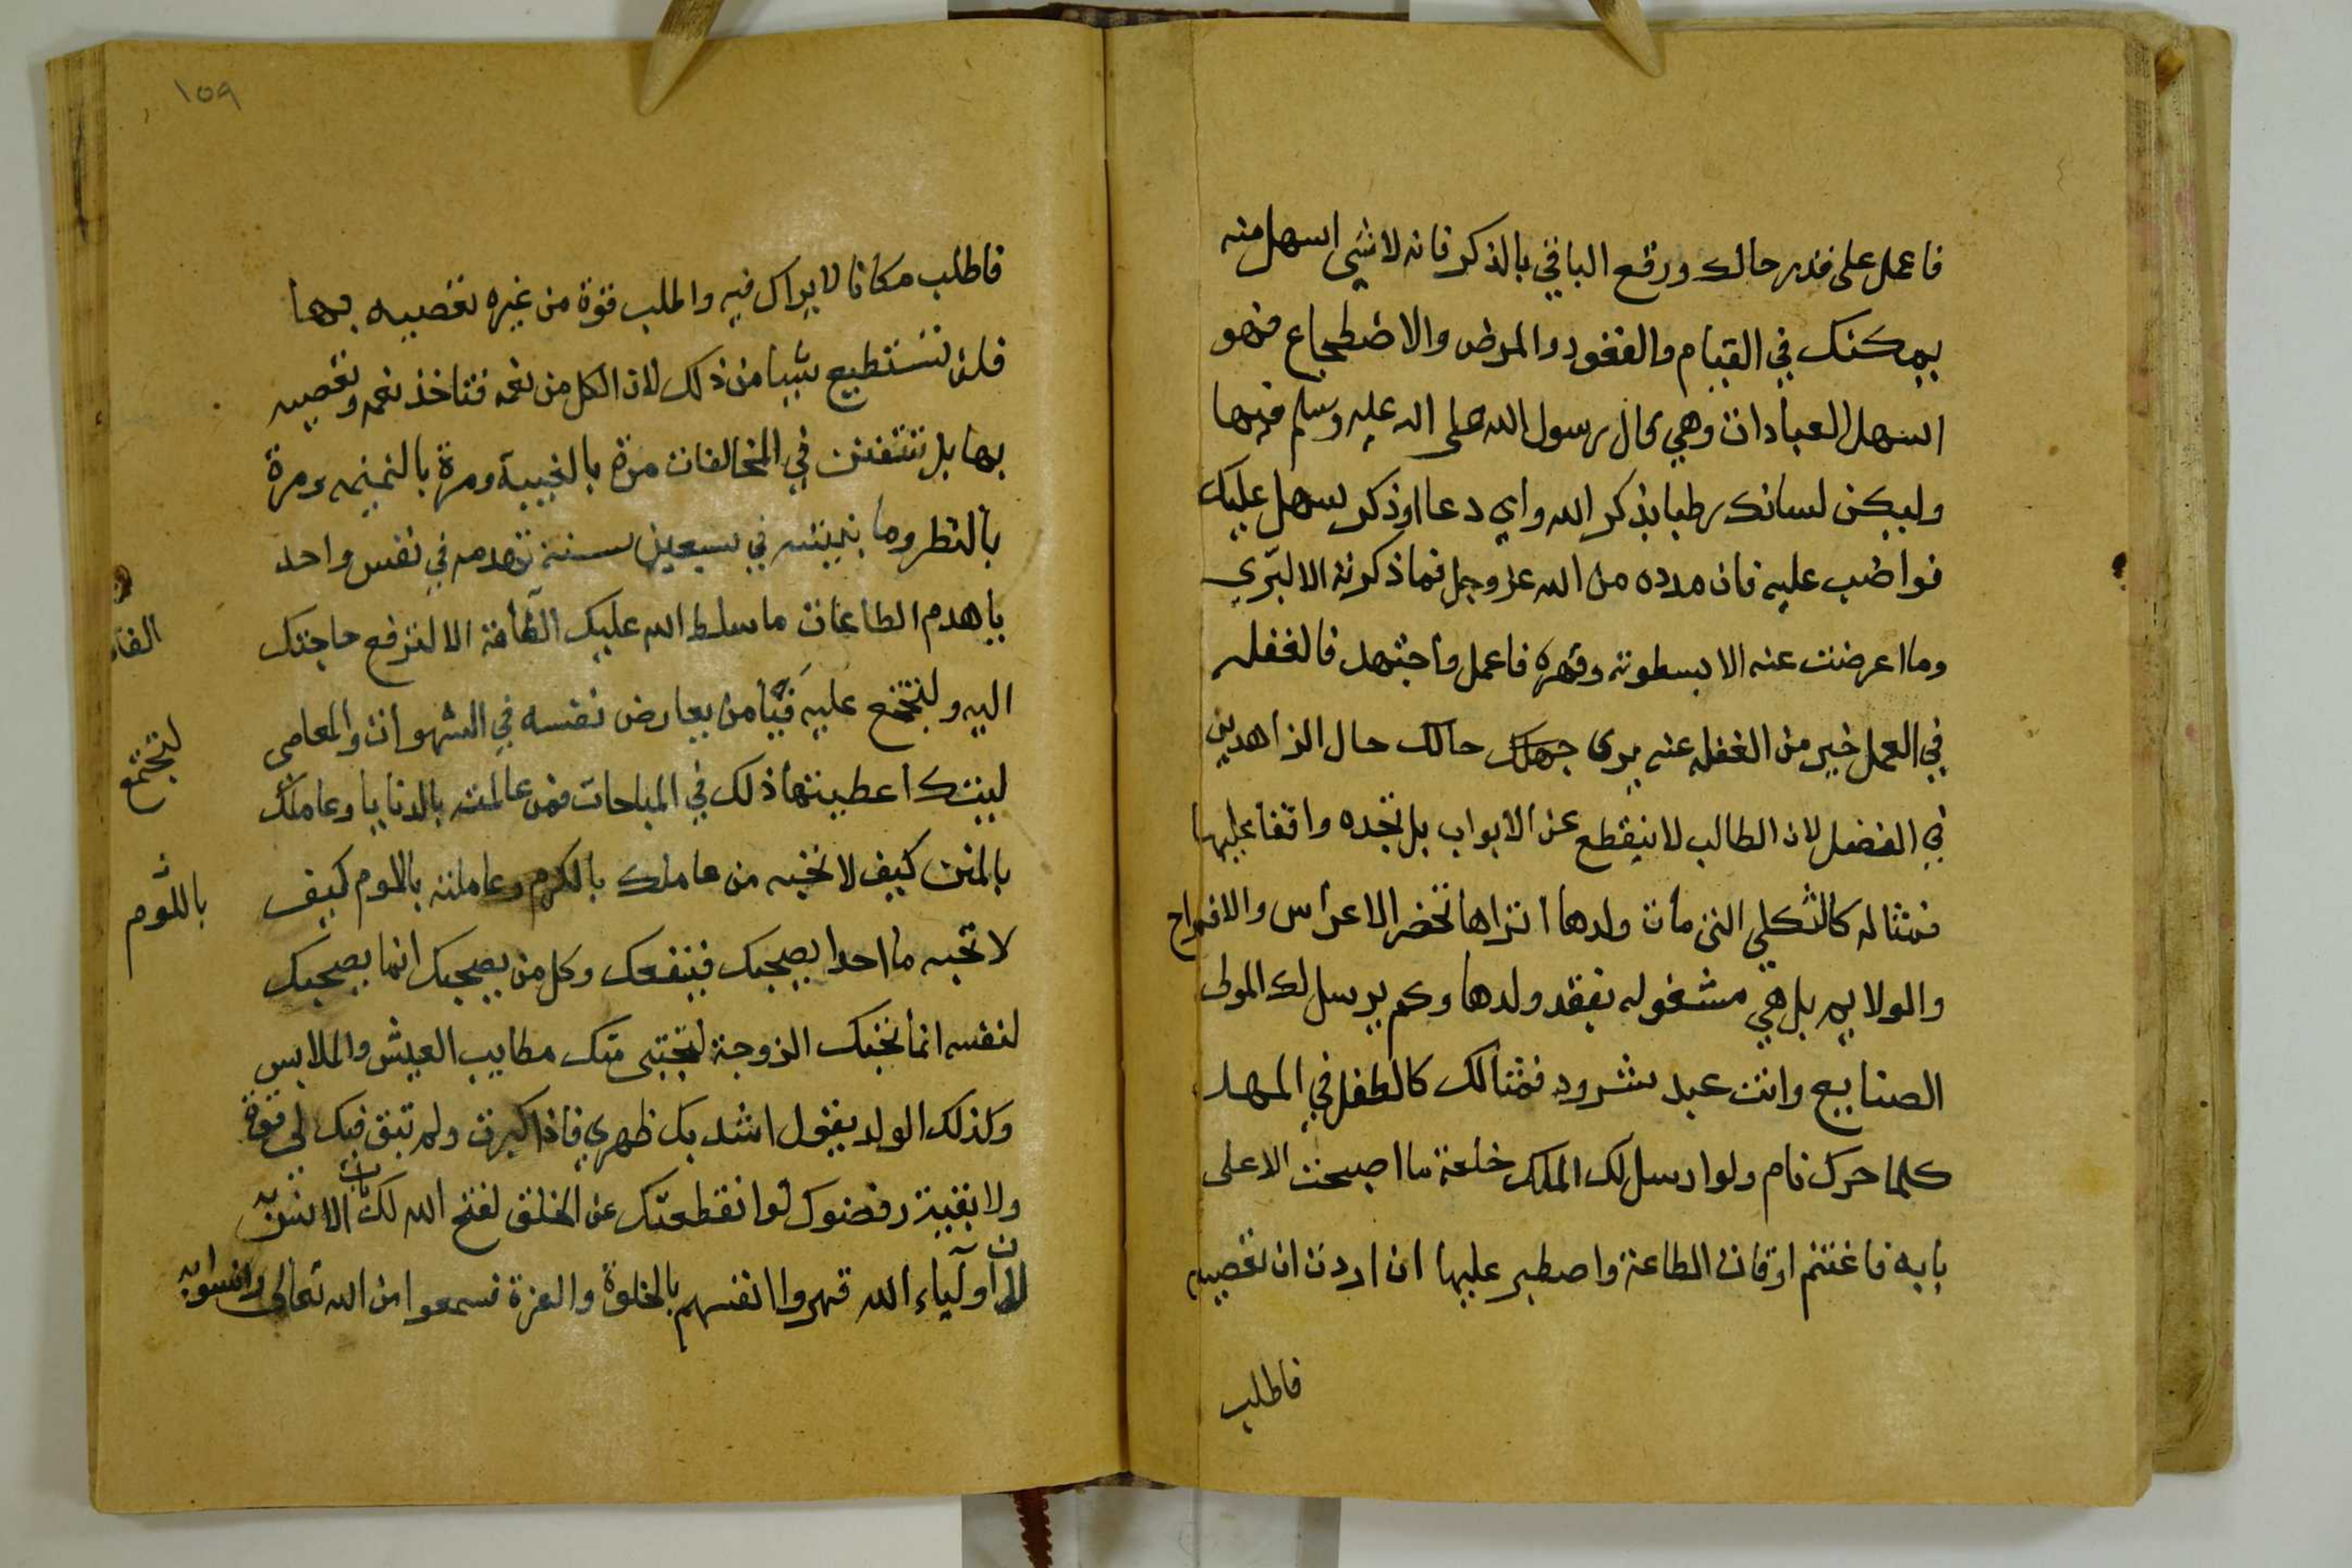 فاعمل على قدر حالك ورقع الباقي بالذكر فانه لا شي اسهل منه
يمكنك في القيام والقعود والمرض والاضطجاع فهو
اسهل العبادات وهي كال رسول الله صلى الله عليه وسلم فيها
وليكن لسانك رطبا بذكر الله واي دعا اوذكر سهل عليك
فواضب عليه فان مدده من الله عز وجل فما ذكرته الا ببري
وما اعرضت عنه الا بسطوته وقهره فاعمل واجتهد فالغفله
في العمل خير من الغفله عنه يرى حالك حال الزاهدين
في الفضل لان الطالب لا ينقطع عن الابواب بل تجده واقفا عليها
فمثاله كالثكلي التي مات ولدها اتراها تحضر الاعراس والافراح
والولايم بل هي مشغوله بفقد ولدها وكم يرسل لك المولى
الصنايع وانت عبد شرود فمثالك كالطفل في المهد
كلما حرك نام ولو ارسل لك الملك خلعة ما اصبحت الا على
بابه فاغتنم اوقات الطاعة واصطبر عليها ان اردت ان تعصيه
فاطلب
١٥٩
فاطلب مكانا لا يراك فيه واطلب قوة من غيره تعصيه بها
فلن تستطيع شيا من ذلك لان الكل من نعمه فتاخذ نعمه وتعصيه
بها بل تتفنن في المخالفات مرة بالغيبة ومرة بالنميمه ومرة
بالنظر وما بنيته في سبعين سنة تهدمه في نفس واحد
يا هدم الطاعات ما سلط الله عليك الفاقة الا لترفع حاجتك
اليه ولتجتمع عليه فيا من يعارض نفسه في الشهوات والمعاصي
ليتك اعطيتها ذلك في المباحات فمن عاملته بالدنايا وعاملك
بالمنن كيف لا تحبه من عاملك بالكرم وعاملته باللوم كيف
لا تحبه ما احدا يصحبك فينفعك وكل من يصحبك انما يصحبك
لنفسه انما تحبك الزوجة لتجتبى منك مطايب العيش والملابس
وكذلك الولد يقول اشد بك ظهري فاذا كبرت ولم تبق فيك لي قوة
ولا بقية رفضوك لو انقطعتك عن الخلق لفتح الله لك باب الانس به
لان اولياء الله قهروا انفسهم بالخلوة والعزة فسمعوا من الله تعالى وانسوا به
لتجتمع
باللوم